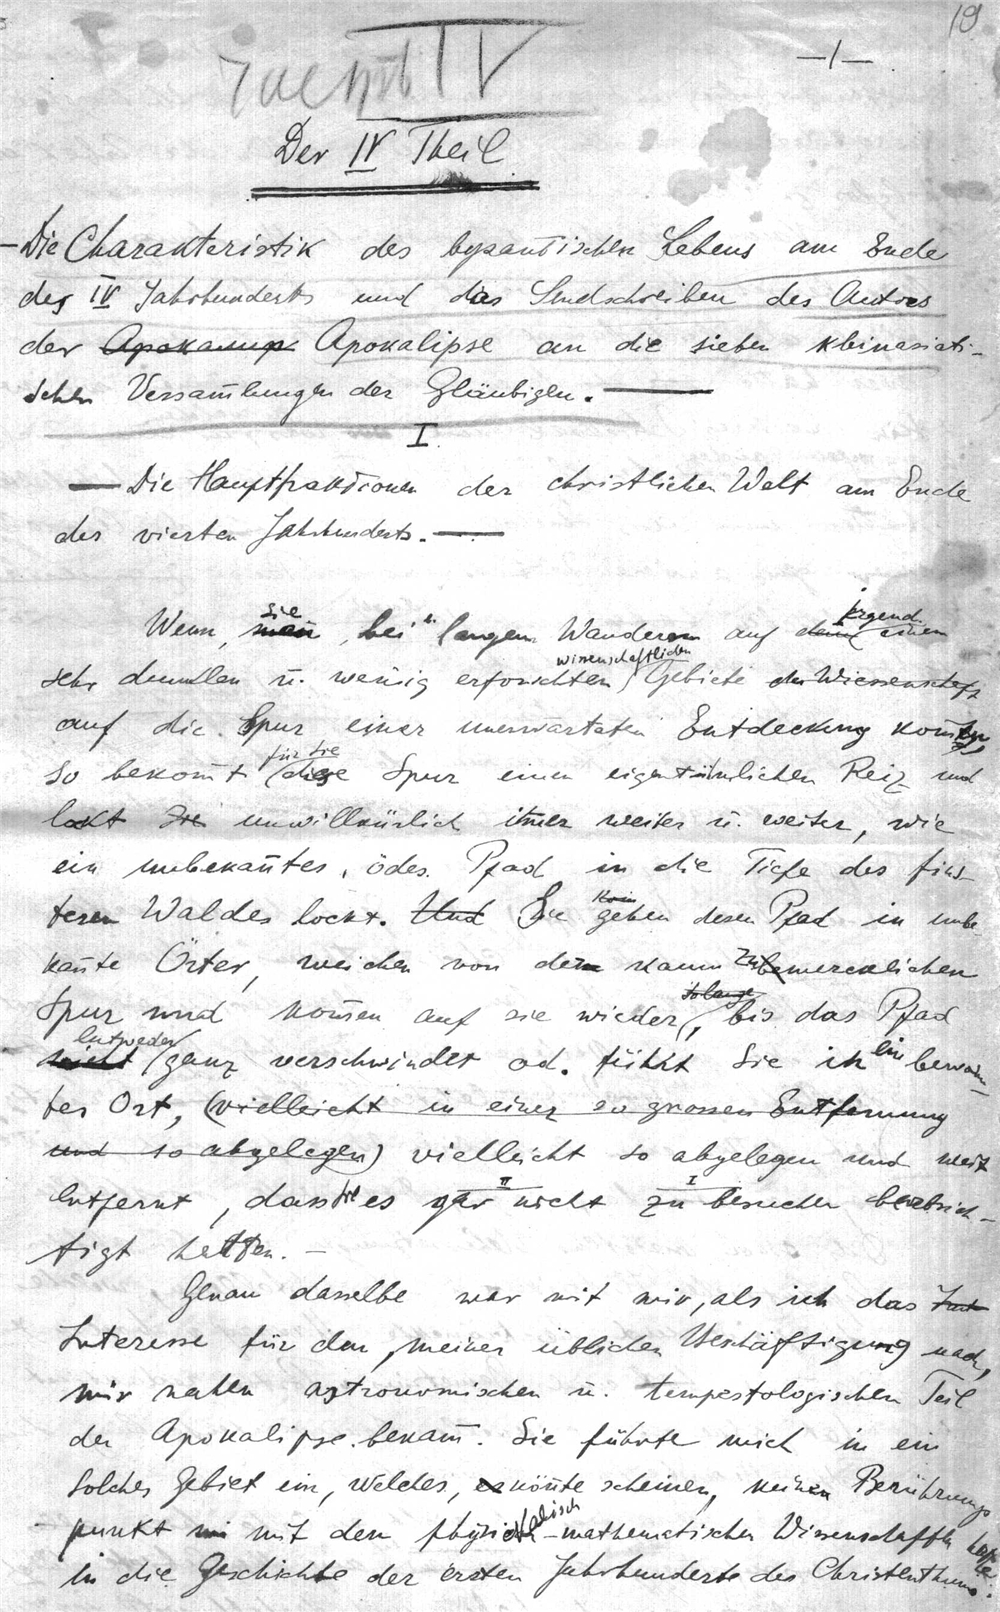 19
—1—
IV
Der IV Theil
— Die Charakteristik des byzantischen Lebens am Ende
des IV Jahrhunderts und das Sendschreiben des Autors
der Апокалип Apokalipse an die sieben kleinasiati-
schen Versam̅lungen der Gläubigen. —
I
— Die Hauptfraktionen der christlichen Welt am Ende
des vierten Jahrhunderts. —
Sie irgend
Wenn, man, bei langem Wandern auf einem
wissenschaftlichen
sehr dunklen u. wenig erforschten Gebiete der Wissenschaft
auf die Spur einer unerwarteten Entdeckung kom̅en,
für Sie
so bekom̅t diese Spur einen eigentümlichen Reiz und
lockt Sie unwillkürlich im̅er weiter u. weiter, wie
ein unbekan̅tes, ödes Pfad in die Tiefe des fins-
teren Waldes lockt. Und Sie gehen desen Pfad in unbe-
kan̅te Örter, weichen von dem kaum bemercklichen
solange
Spur und kom̅en auf sie wieder, bis das Pfad
entweder
nicht ganz verschwindet od. führt Sie in ein bewohn-
tes Ort, (vielleicht in einer so grossen Entfernung
und so abgelegen) vielleicht so abgelegen und weit
II I
entfernt, dass Sie es gar nicht zu besuchen beabsich-
tigt hetten. —
Genau dasselbe war mit mir, als ich das Int
Interesse für den, meiner üblichen Beschäftigung nach,
mir nahen astronomischen u. tempestologischen Teil
der Apokalipse bekam̅. Sie führte mich in ein
solches Gebiet ein, welches, es kön̅te scheinen, keinen Berührungs-
kalisch
punkt mit den physi-mathematischen Wissenschaften hatte
in die Geschichte der ersten Jahrhunderte des Christenthums.